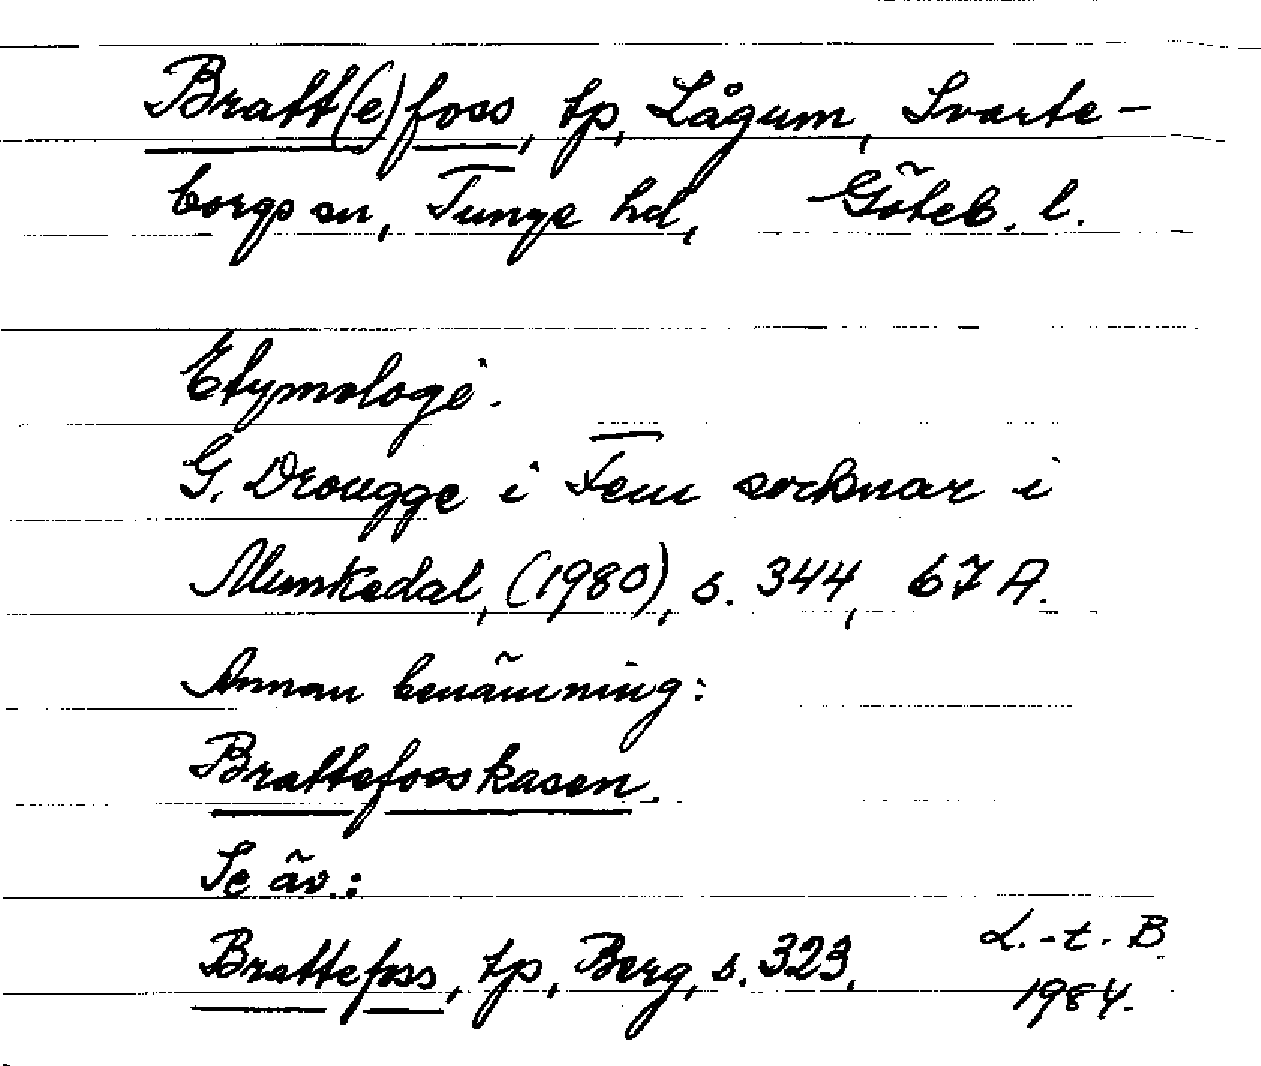 Bratt(e)foss, tp, Lågum, Svarte-
borgs sn, Tunge hd, Göteb. l.
Etymologi.
G. Drougge i Fem socknar i
Munkedal, (1980), s. 344, 67 A.
Annan benämning:
Brattefosskasen.
Se äv.:
Brattefoss, tp, Berg, s. 323.
L.-t. B
1984.